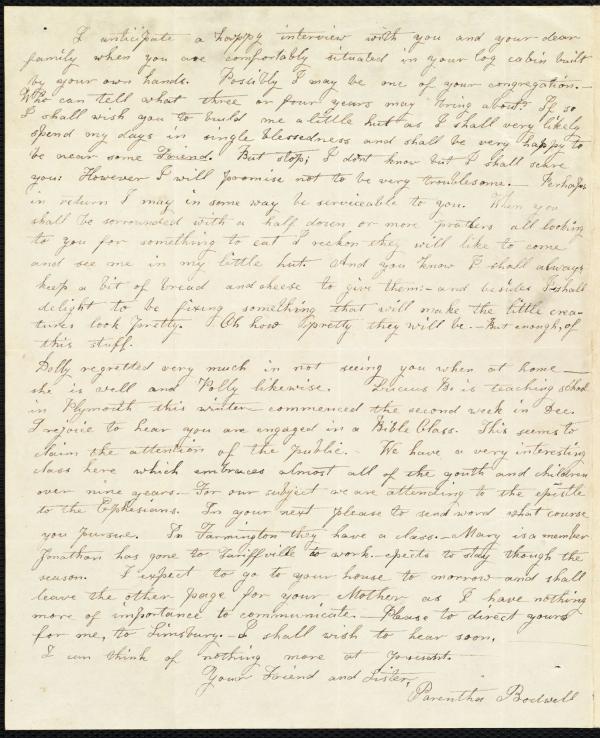 I anticipate a happy interview with you and your dear
family when you are comfortably situated in your log cabin built
by your own hands. Possibly I may be one of your congregation.—
Who can tell what three or four years may bring about? If so
I shall wish you to build me a little hut as I shall very likely
spend my days in single blessedness and shall be very happy to
be near some Friend. But stop; I dont know but I shall scare
you: However I will promise not to be very troublesome.— Perhaps
in return I may in some way be serviceable to you. When you
shall be sorrounded with a half down or more pratlers all looking
to you for something to eat I reckon they will like to come
and see me in my little hut. And you know I shall always
keep a bit of bread and cheese to give them— and besides I shall
delight to be fixing something that will make the little crea-
tures look pretty. Oh how pretty they will be.— But enough, of
this stuff.
Dolly regretted very much in not seeing you when at home—
she is well and Polly likewise. Lucius B. is teaching school
in Plymouth this winter— commenced the second week in Dec.
I rejoice to hear you are engaged in a Bible Class. This seems to
claim the attention of the public.— We have a very interesting
class here which embraces almost all of the youth and children
over nine years.— For our subject we are attending to the epistle
to the Ephesians. In your next please to send word what course
you pursue. In Farmington they have a class.— Mary is a member
Jonathan has gone to Tariffville to work— epects to stay though the
season. I expect to go to your house to morrow— and shall
leave the other page for your Mother as I have nothing
more of importance to communicate.— Please to direct yours
for me, to Simsbury.— I shall wish to hear soon.
I can think of nothing more at present.—
Your Friend and Sister,
Parentha Bodwell